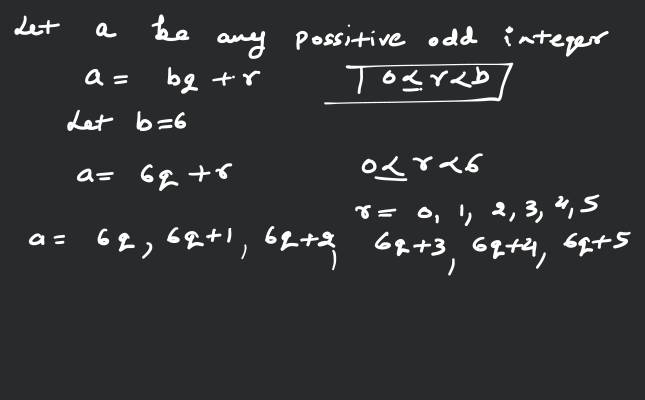 Let a be any possitive odd integer
a = bq + r 0 ≤ r < b
Let b = 6
a = 6q + r 0 ≤ r < 6
r = 0, 1, 2, 3, 4, 5
a = 6q, 6q+1, 6q+2, 6q+3, 6q+4, 6q+5